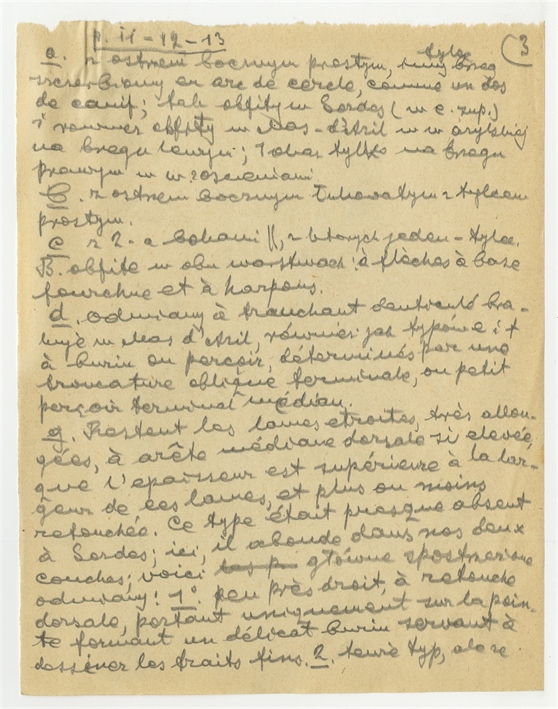 p. 11-12-13
(3
a. z ostrzem bocznym prostym, tylec
szczerbiony en arc de cercle, comme un dos
de canif; tak obfity w Sordes (w e. sup.)
i również obfity w Mas-d'Azil w w. azylskiej
na brzegu lewym; tobac tylko na brzegu
prawym w w.
b. z ostrzem bocznym łukowatym z tylcem
prostym.
c z 2-a bokami ||, z których jeden - tylec.
B. obfite w obu warstwach: à flèches à base
fourchue et à harpons.
d. odmiany à tranchant denticulé bra-
kuje w Mas d'Azil, również jak typów e i f
à burin ou perçoir, déterminés par une
troncature oblique terminale, ou petit
perçoir terminal médian.
g. Restent les lames étroites, très allon-
gées, à arête médiane dorsale si élevée,
que l'épaisseur est supérieure à la lar-
geur de ces lames, et plus ou moins
retouchée. Ce type était presque absent
à Sordes; ici, il abonde dans nos deux
couches; voici główne
odmiany: 1º. peu près droit, à retouche
dorsale, portant uniquement sur la poin-
te formant un délicat burin servant à
dessiner les traits fins. 2. typ, ale